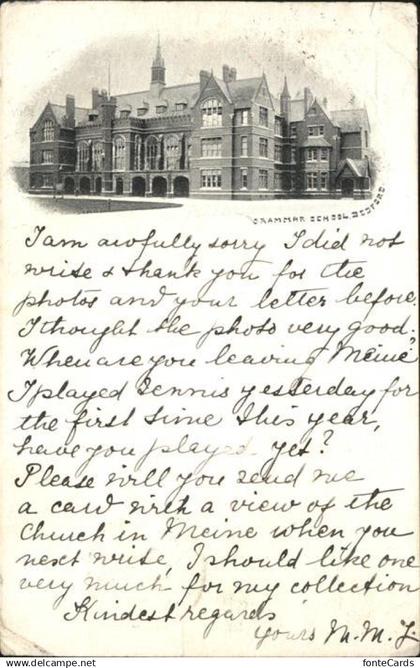 GRAMMAR SCHOOL, BEDFORD
I am awfully sorry I did not
write & thank you for the
photos and your letter before.
I thought the photo very good.
When are you leaving Meine?
I played Tennis yesterday for
the first time this year,
have you played yet?
Please will you send me
a card with a view of the
church in Meine when you
next write, I should like one
very much for my collection
Kindest regards
yours M. M. L
fonteCards